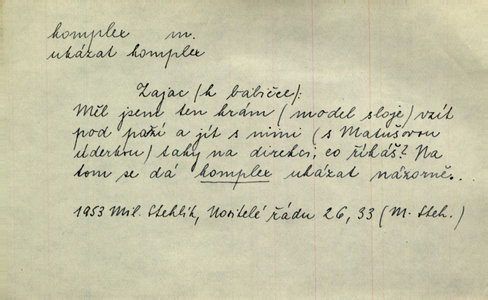 komplex m.
ukázat komplex
Zajac (k babičce):
Měl jsem ten krám (model sloje) vzít
pod paží a jít s nimi (s Matušovou
úderkou) taky na direkci, co říkáš? Na
tom se dá komplex ukázat názorně.
1953 Mil. Stehlík, Nositelé řádu 26, 33 (M. Steh.)